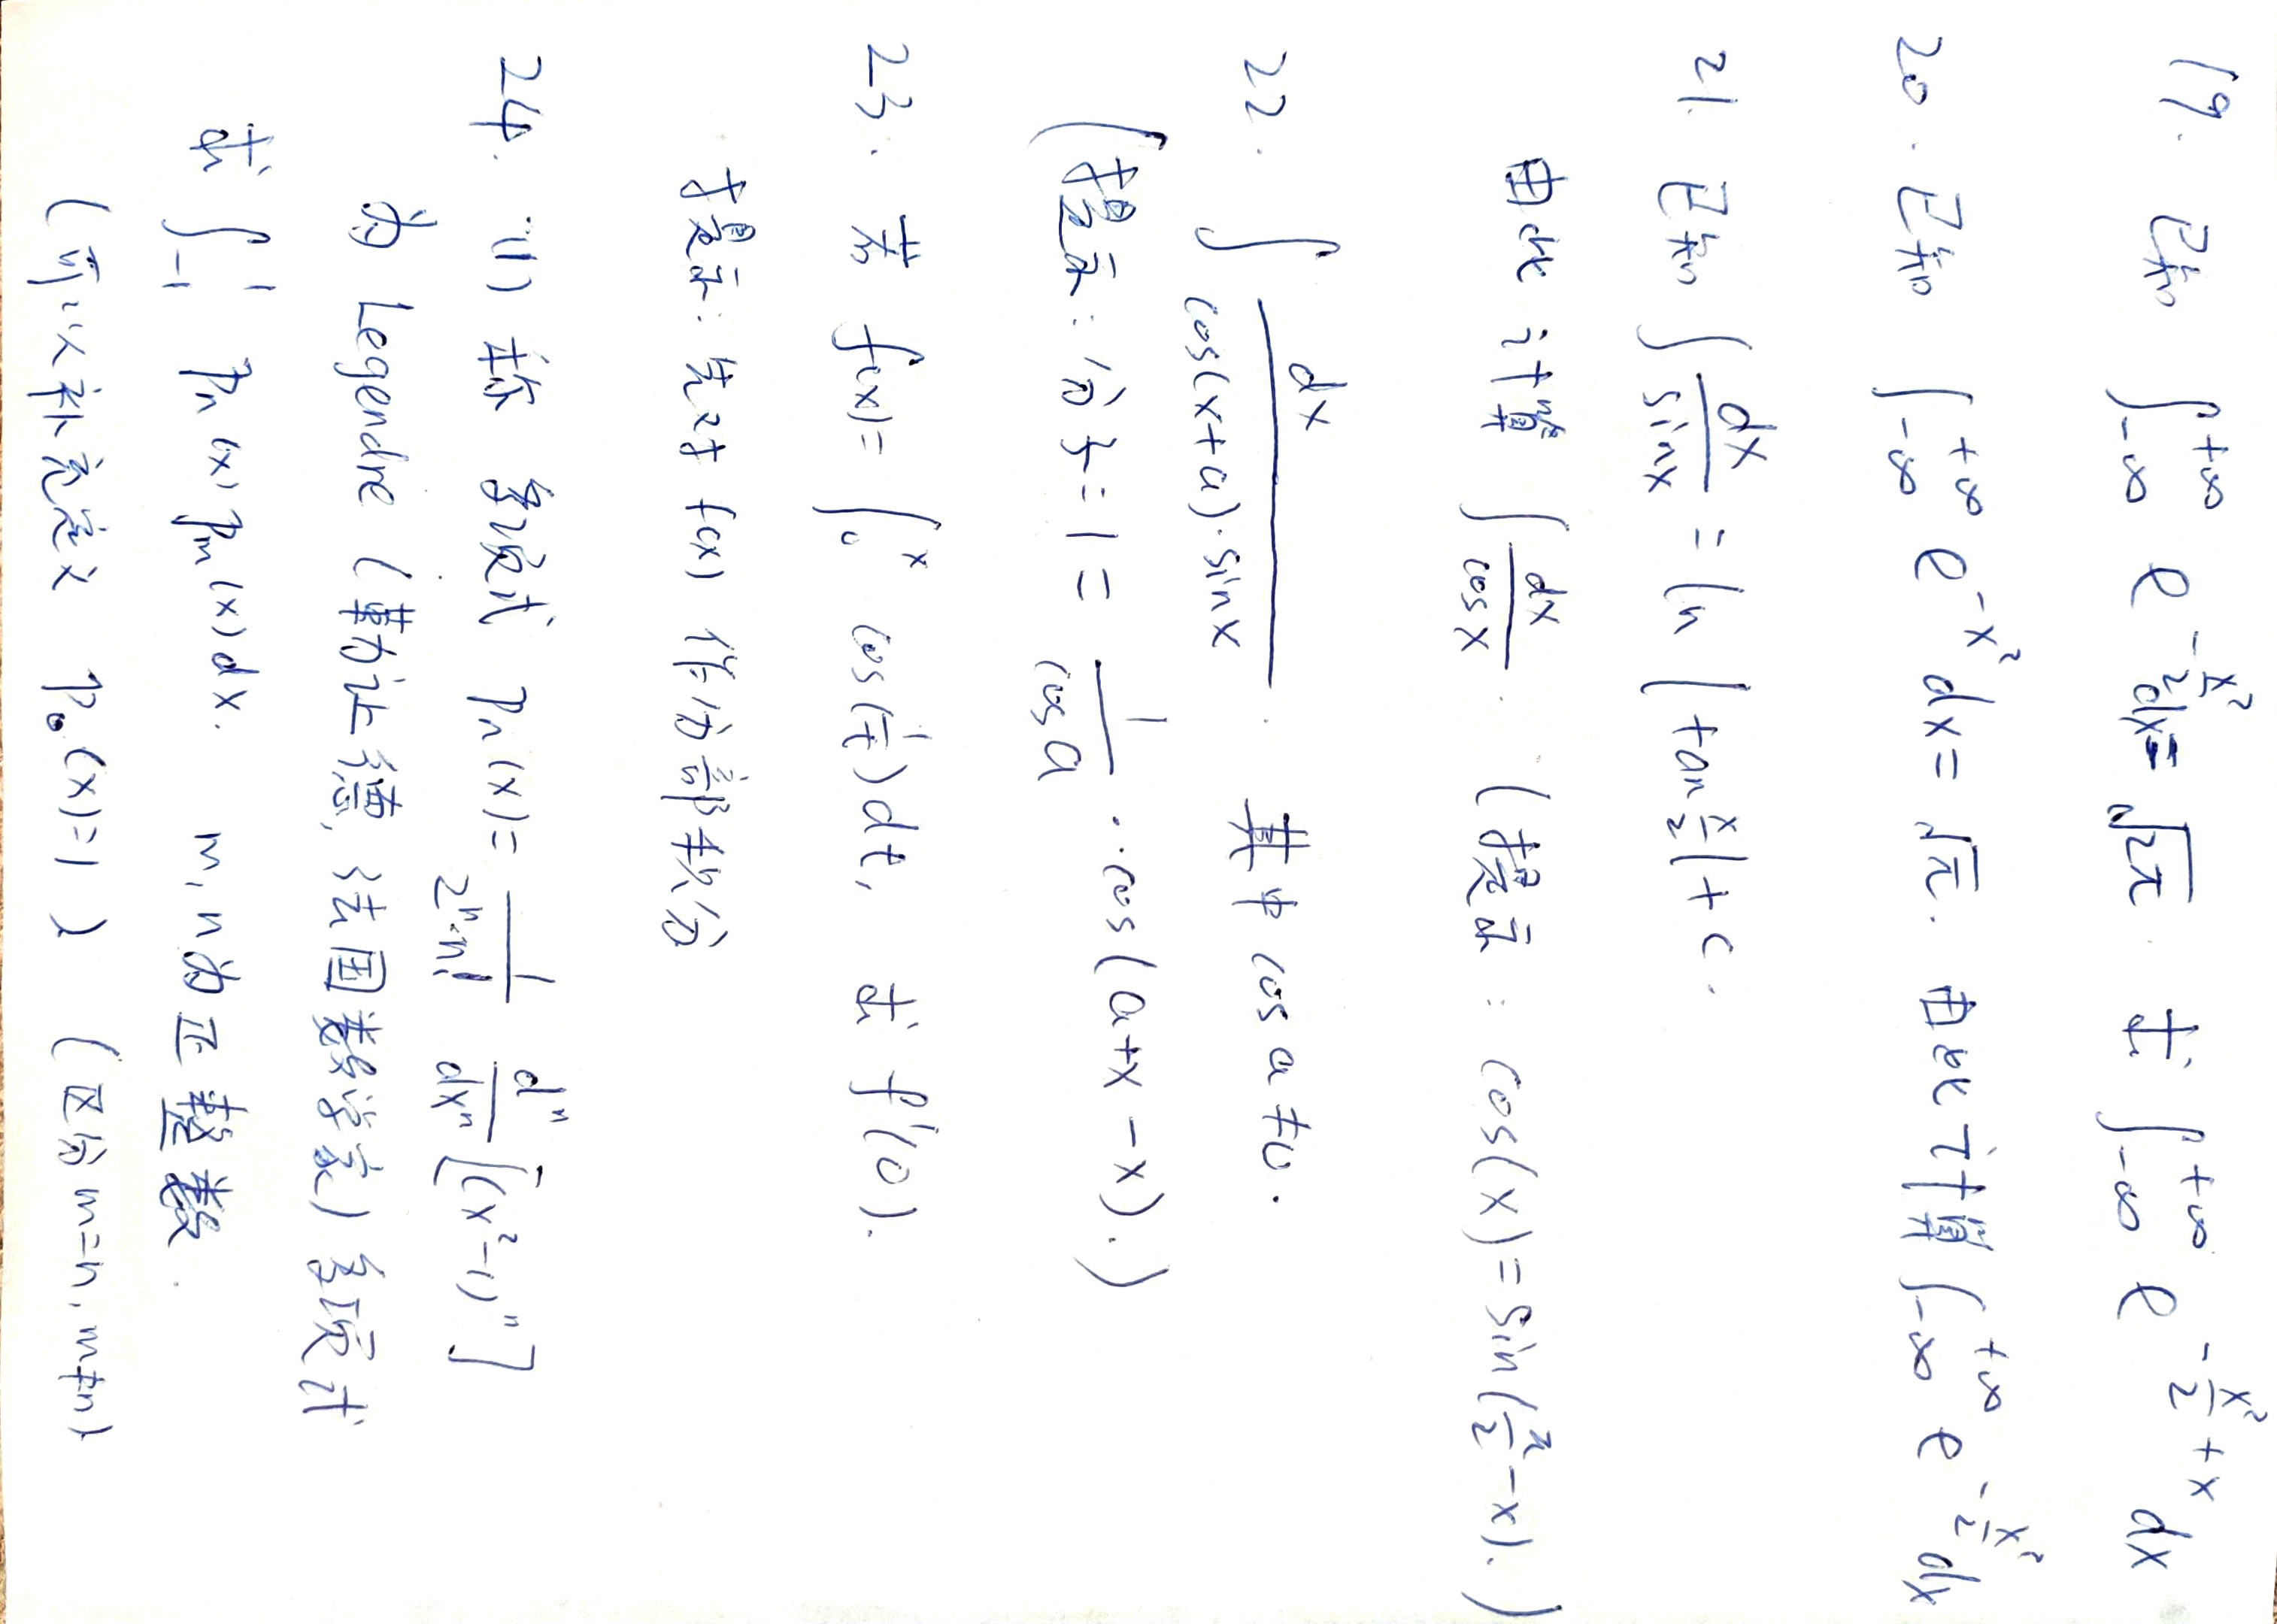 19. 已知 ∫_{-∞}^{+∞} e^{-x²/2} dx = √2π. 求 ∫_{-∞}^{+∞} e^{-x²/2 + x} dx
20. 已知 ∫_{-∞}^{+∞} e^{-x²} dx = √π. 由此计算 ∫_{-∞}^{+∞} e^{-x²/2} dx
21. 已知 ∫ dx/sinx = ln |tan x/2| + c.
由此计算 ∫ dx/cosx. (提示: cos(x) = sin(π/2 - x).)
22. ∫ dx/(cos(x+a)·sinx). 其中 cos a ≠ 0.
(提示: 分子 = 1 = 1/cos a ··cos(a+x-x).)
23. 若 f(x) = ∫_0^x cos(1/t) dt, 求 f'(0).
提示: 先对 f(x) 作分部积分
24. (1) 称 多项式 P_n(x) = 1/(2^n·n!) d^n/dx^n [(x²-1)^n]
为 Legendre (勒让德, 法国数学家) 多项式
求 ∫_{-1}^{1} P_n(x) P_m(x) dx. m, n 为正整数.
(可以补充定义 P_0(x) = 1) (区分 m=n, m≠n)